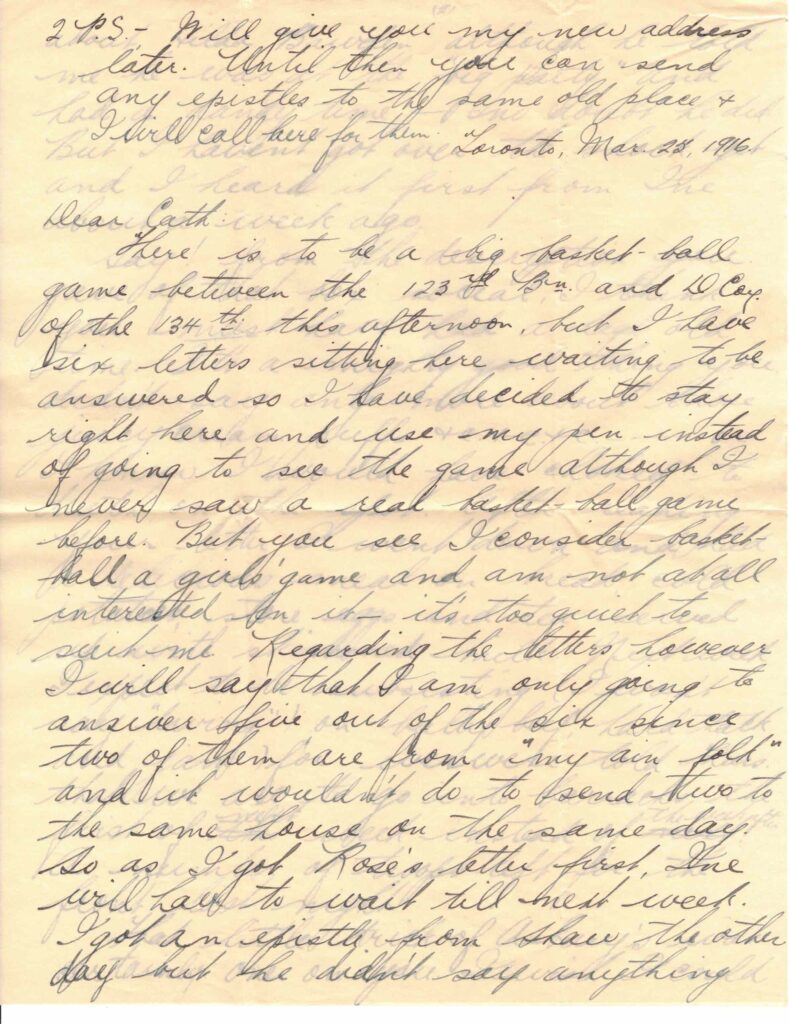 2 P.S. - Will give you my new address
later. Until then you can send
any epistles to the same old place +
I will call here for them.
Toronto, Mar. 25, 1916.
Dear Cath:
There is to be a big basket-ball
game between the 123rd Bn. and D Coy.
of the 134th this afternoon, but I have
six letters sitting here waiting to be
answered so I have decided to stay
right here and use my pen instead
of going to see the game although I
never saw a real basket-ball game
before. But you see I consider basket-
ball a girls' game and am not at all
interested in it - it's too quiet to
suit me. Regarding the letters however
I will say that I am only going to
answer five out of the six since
two of them are from "my ain folk"
and it wouldn't do to send two to
the same house on the same day.
So as I got Rose's letter first, Ine
will have to wait till next week.
I got an epistle from Shaw the other
day but he didn't say anything